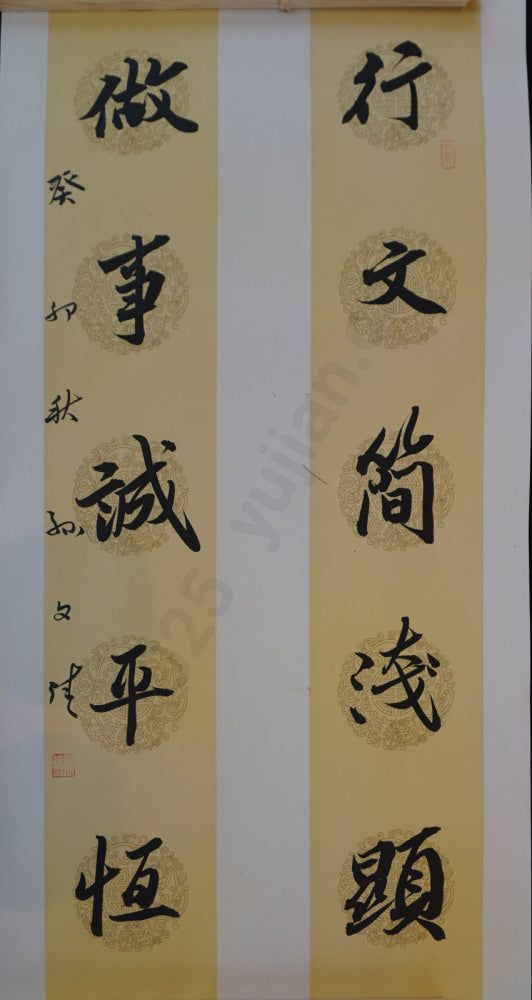 行文简淺顯
做事誠平恒
癸卯秋孙文
025 yujian.